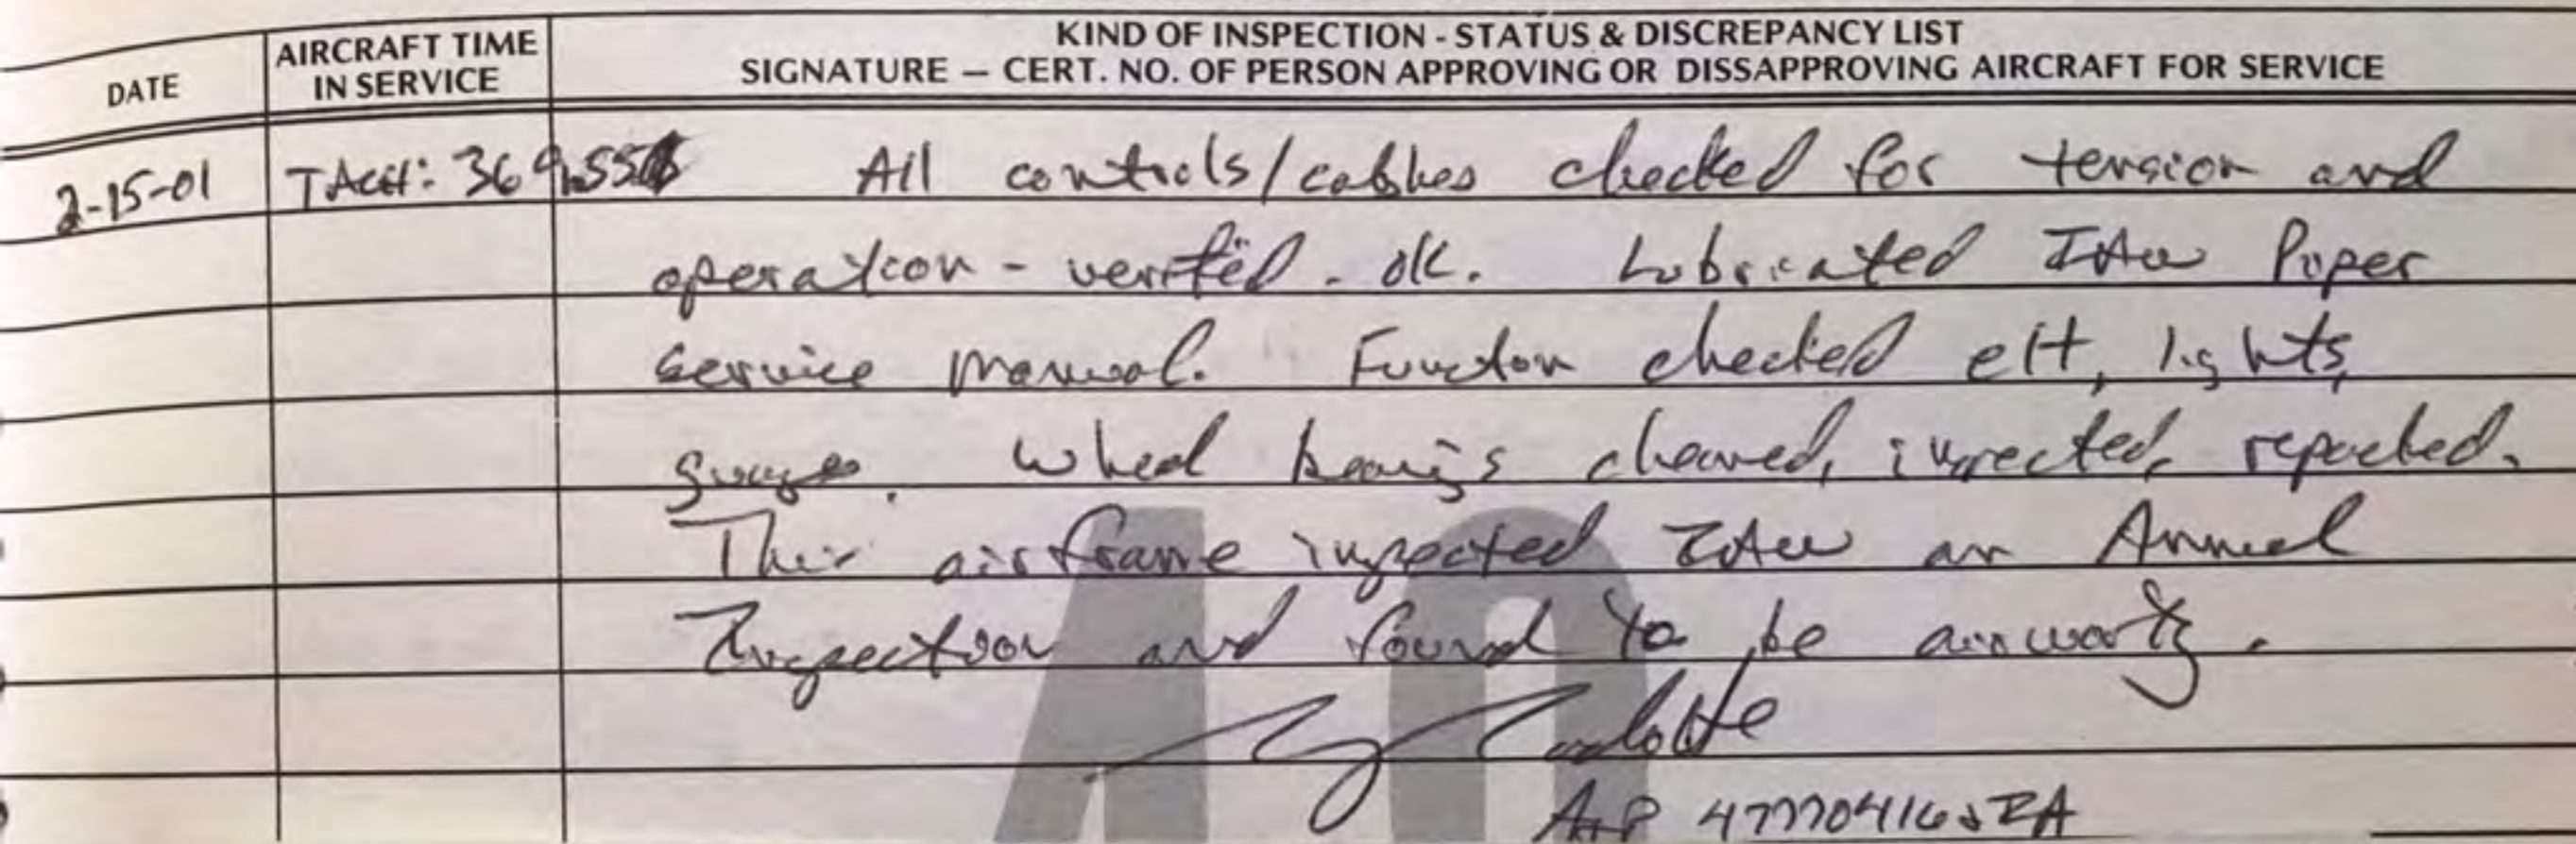 DATE
AIRCRAFT TIME
IN SERVICE
KIND OF INSPECTION - STATUS & DISCREPANCY LIST
SIGNATURE — CERT. NO. OF PERSON APPROVING OR DISSAPPROVING AIRCRAFT FOR SERVICE
2-15-01 TACH: All controls/cables checked for tension and
operation - verified - ok. Lubricated IAW Piper
service manual. Function checked elt, lights,
gauges. Wheel bearings cleaned, inspected, repacked.
This airframe inspected IAW an Annual
Inspection and found to be airworthy.
A+P IA